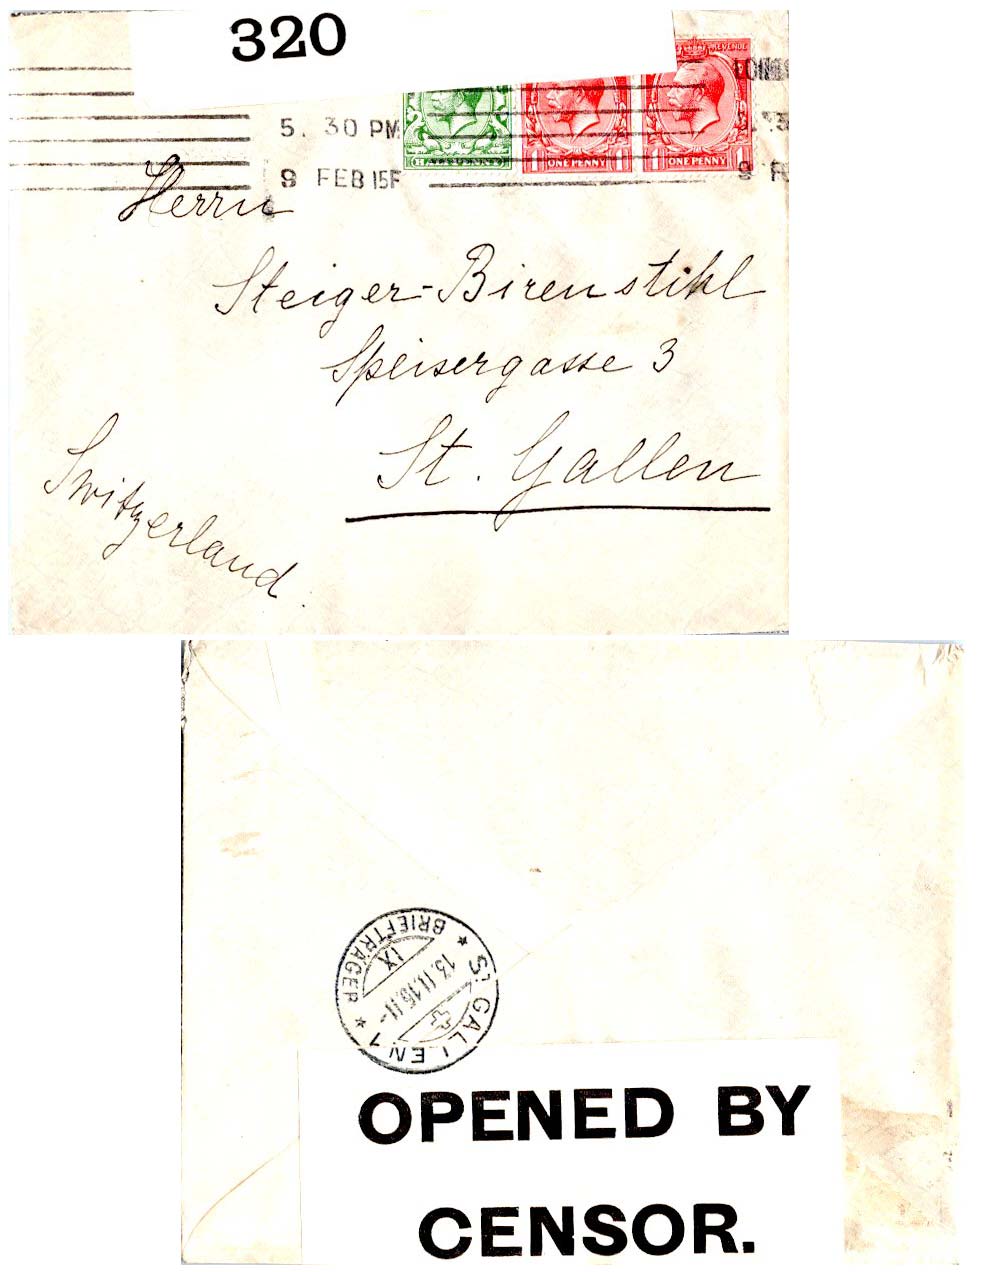 320
REVENUE
5. 30 PM
9 FEB 15 F
HALFPENNY
1 ONE PENNY 1
1 ONE PENNY 1
Herrn
Steiger-Birenstihl
Speisergasse 3
St. Gallen
Switzerland.
ST GALLEN 1
* BRIEFTRÄGER *
IX
OPENED BY
CENSOR.